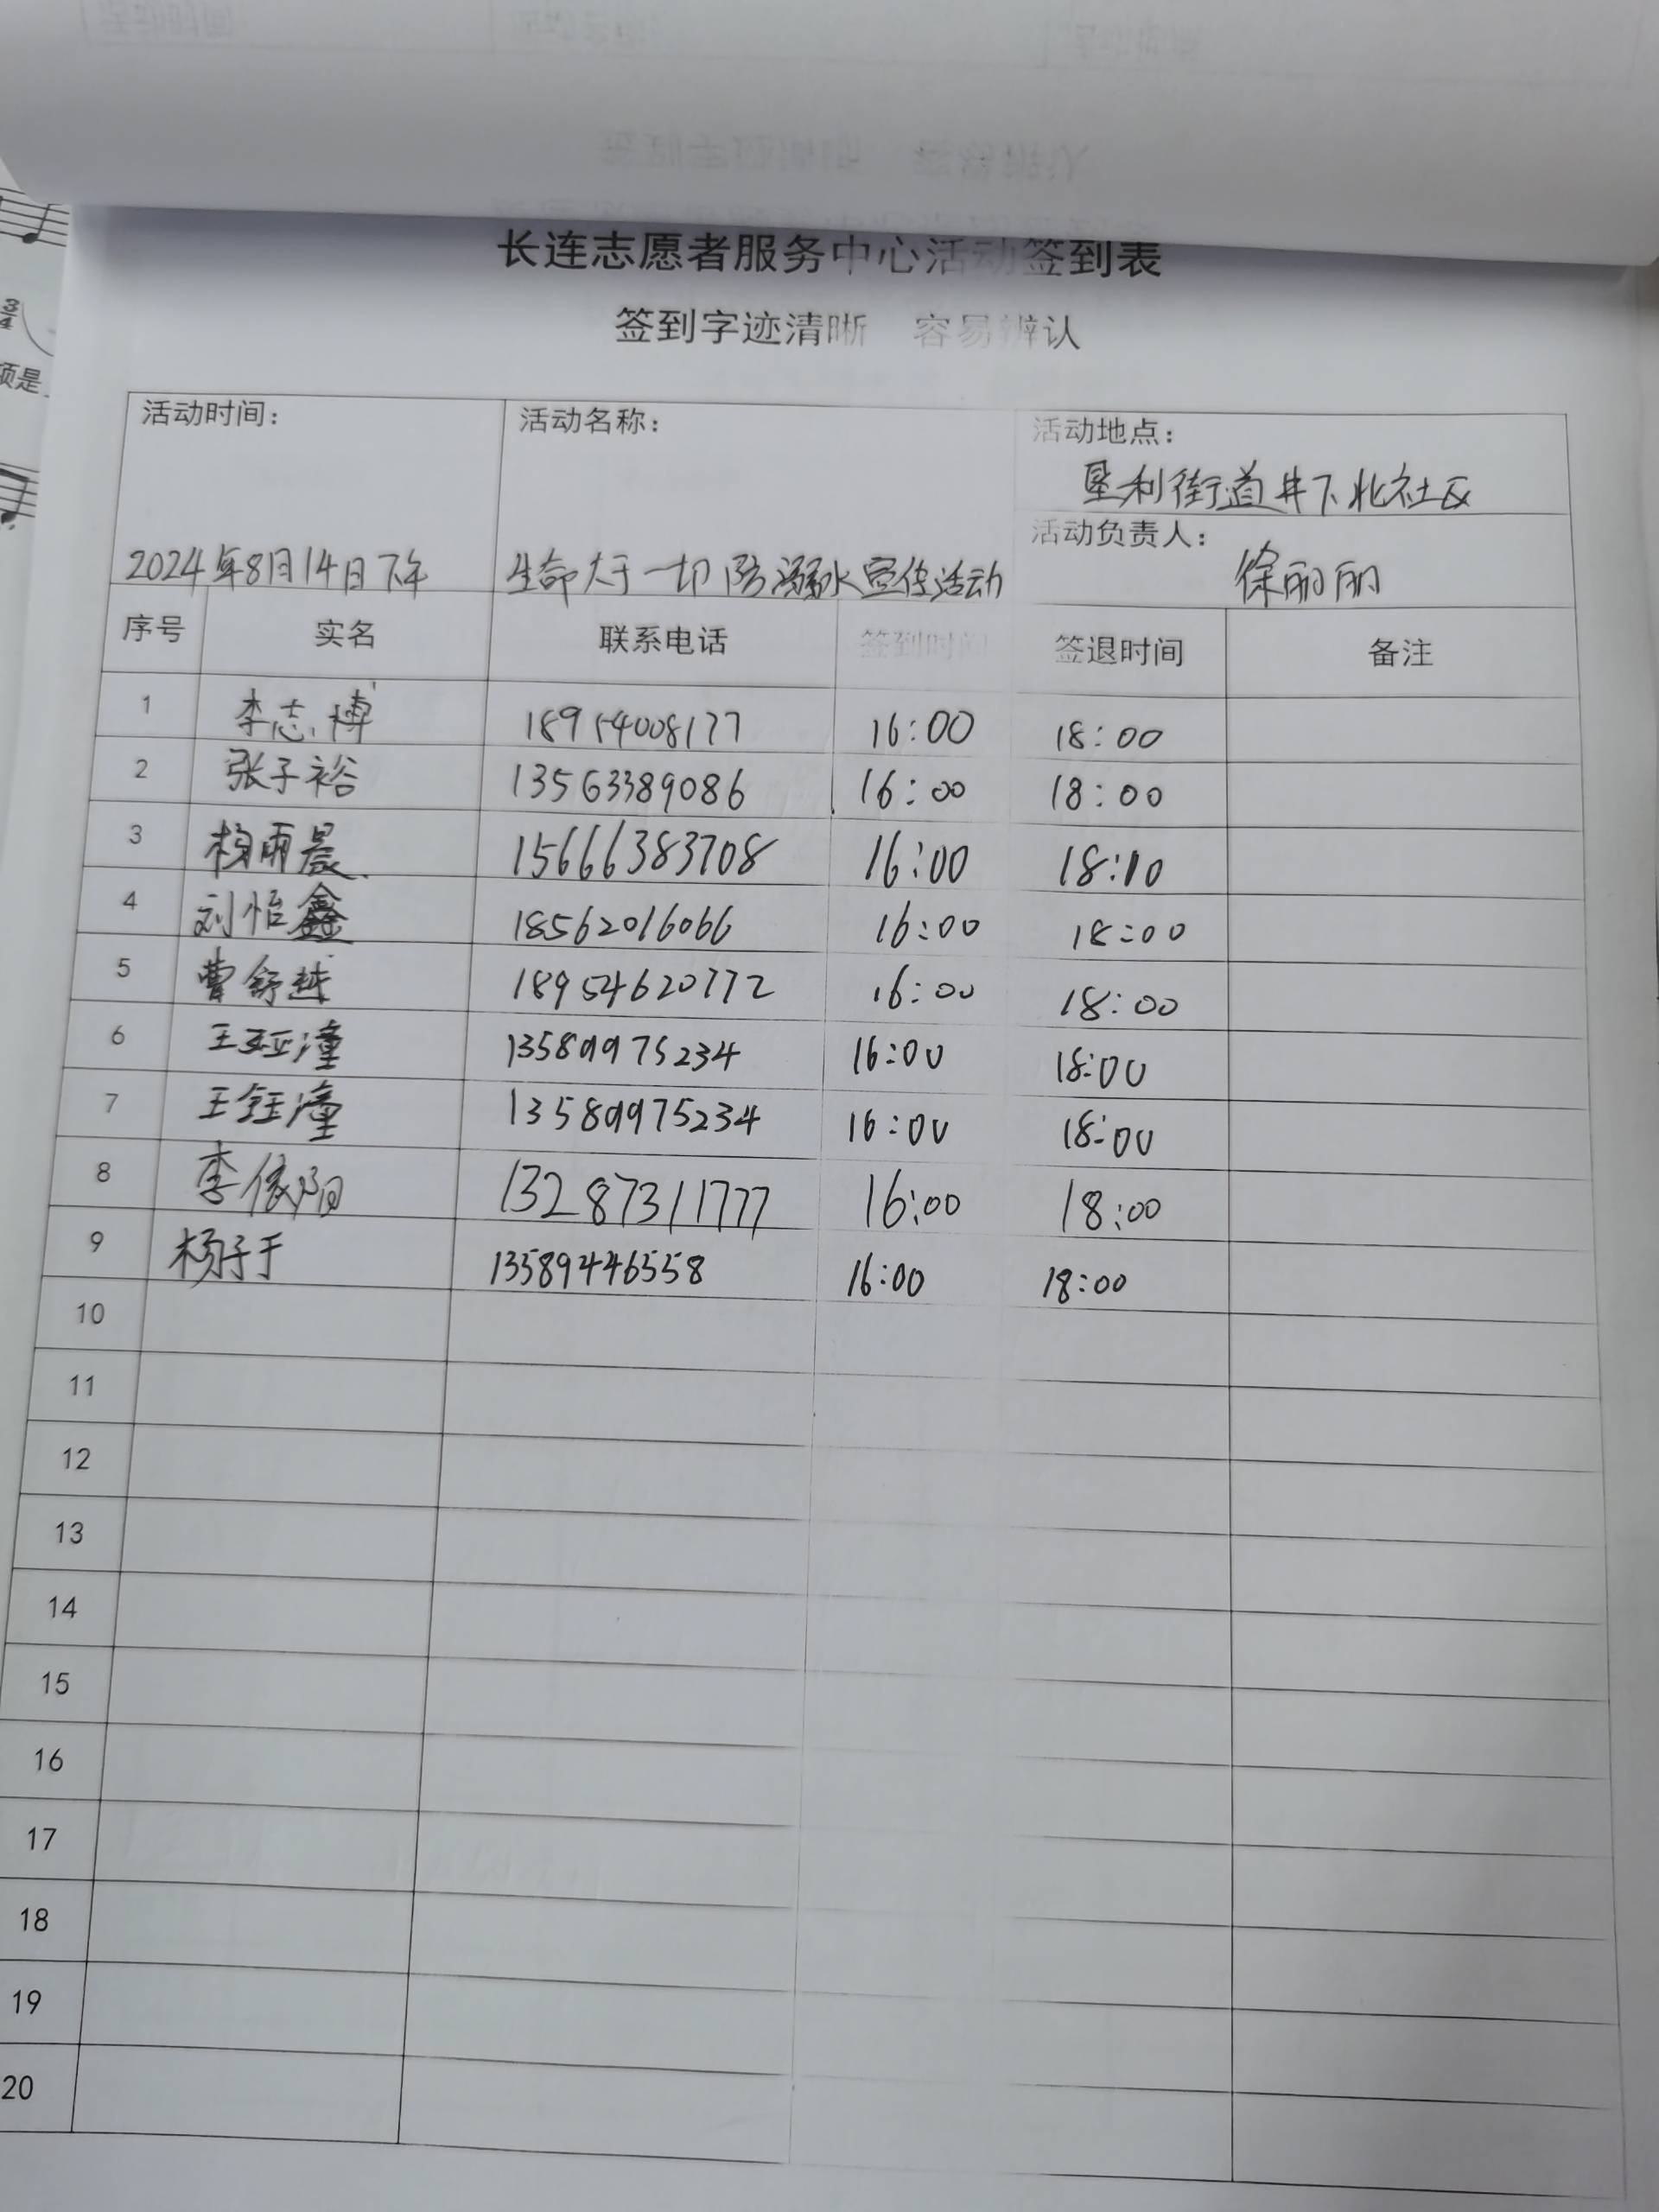 长连志愿者服务中心活动签到表
签到字迹清晰 容易辨认
活动时间： 活动名称： 活动地点：
垦利街道井下北社区
活动负责人：
2024年8月14日下午 生命大于一切 防溺水宣传活动 徐丽丽
序号 实名 联系电话 签到时间 签退时间 备注
1 李志博 18954008177 16:00 18:00
2 张子裕 13563389086 16:00 18:00
3 杨雨晨 15666383708 16:00 18:10
4 刘怡鑫 18562016066 16:00 18:00
5 曹舒越 18954620772 16:00 18:00
6 王珏潼 13589975234 16:00 18:00
7 王钰潼 13589975234 16:00 18:00
8 李依阳 13287311777 16:00 18:00
9 杨子于 13589446558 16:00 18:00
10
11
12
13
14
15
16
17
18
19
20